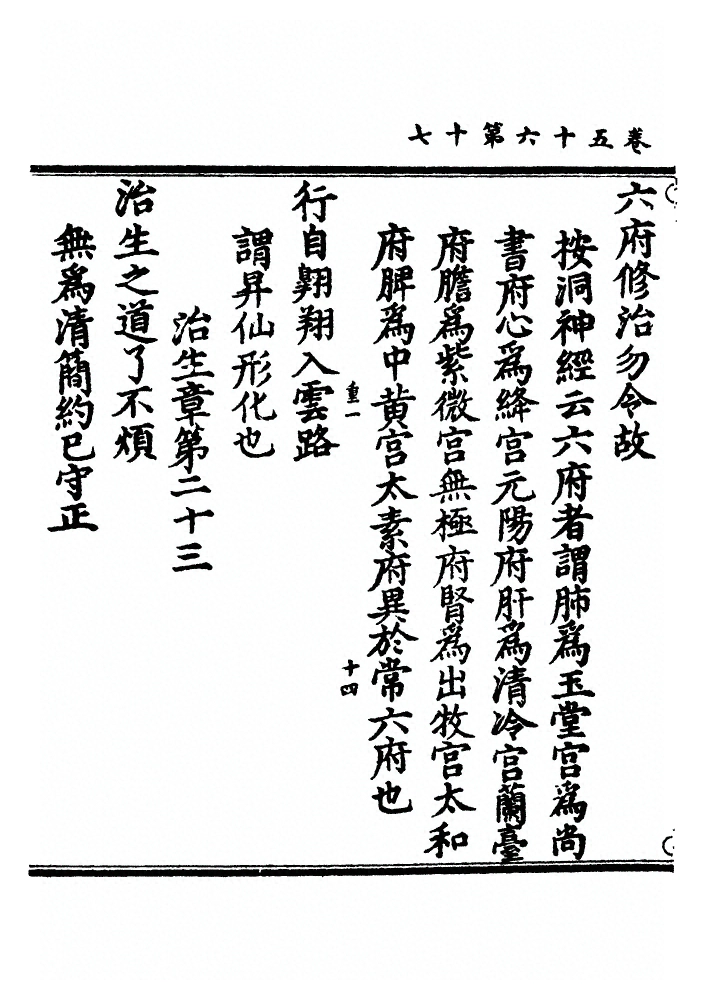 卷五十六第十七
六府修治勿令故
按洞神經云六府者謂肺爲玉堂宮爲尚
書府心爲絳宮元陽府肝爲清冷宮蘭臺
府膽爲紫微宮無極府腎爲出牧宮太和
府脾爲中黄宮太素府異於常六府也
重一
十四
行自翺翔入雲路
謂昇仙形化也
治生章第二十三
治生之道了不煩
無爲清簡約己守正